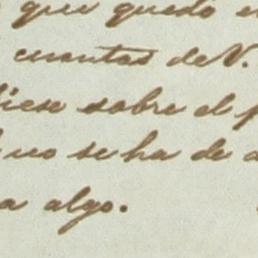 que quedó e
cuentas de V.
iese sobre el p
no se ha de a
a algo.